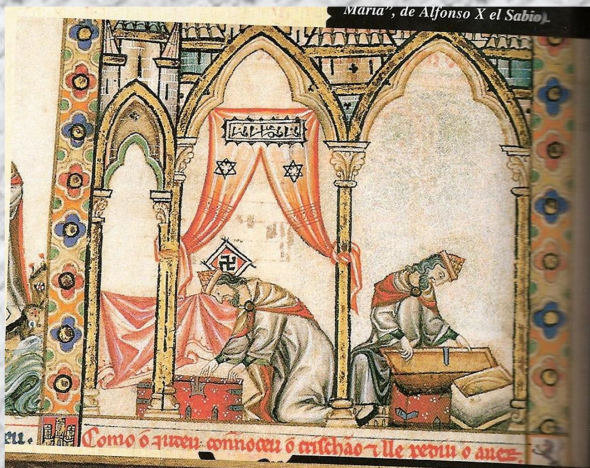 María", de Alfonso X el Sabio).
eu.
Como o iudeu connoceu o crischão ⁊ lle pediu o auer.